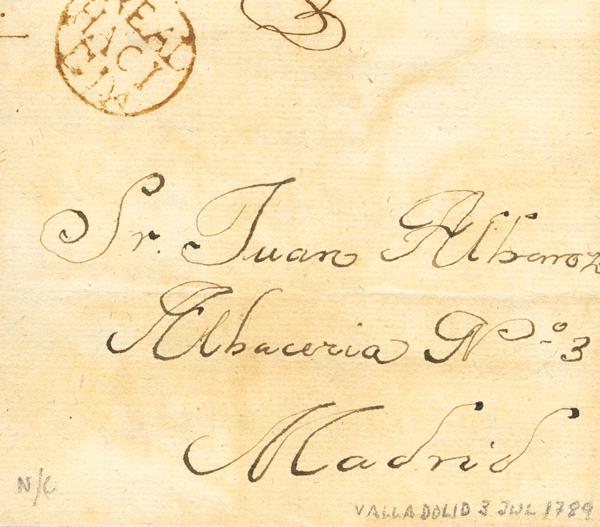 REAL
HACI
EDA
Sr. Juan Albaroz
Albaceria Nº 3
Madrid
N/C
VALLADOLID 3 JUL 1789